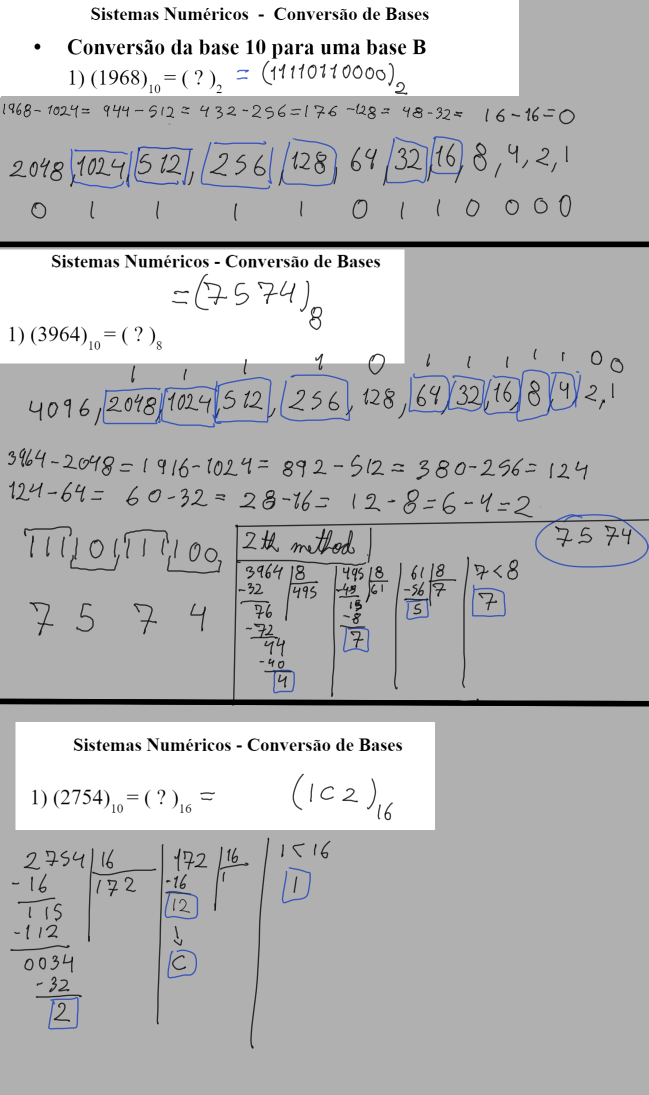 Sistemas Numéricos - Conversão de Bases
• Conversão da base 10 para uma base B
1) (1968)10 = ( ? )2 = (11110110000)2
1968-1024= 944-512= 432-256=176-128= 48-32= 16-16=0
2048,1024,512,256,128,64,32,16,8,4,2,1
0 1 1 1 1 0 1 1 0 0 0 0
Sistemas Numéricos - Conversão de Bases
=(7574)8
1) (3964)10 = ( ? )8
1 1 1 1 0 1 1 1 1 1 0 0
4096,2048,1024,512,256,128,64,32,16,8,4,2,1
3964-2048=1916-1024=892-512=380-256=124
124-64= 60-32= 28-16= 12-8=6-4=2
111,101,111,100
7 5 7 4
2th method
7574
3964 8
-32 495
76
-72
44
-40
4
495 8
-48 61
15
-8
7
61 8
-56 7
5
7<8
7
Sistemas Numéricos - Conversão de Bases
1) (2754)10 = ( ? )16 = (1C2)16
2754 16
-16 172
115
-112
0034
-32
2
172 16
-16 1
12
↓
C
1<16
1